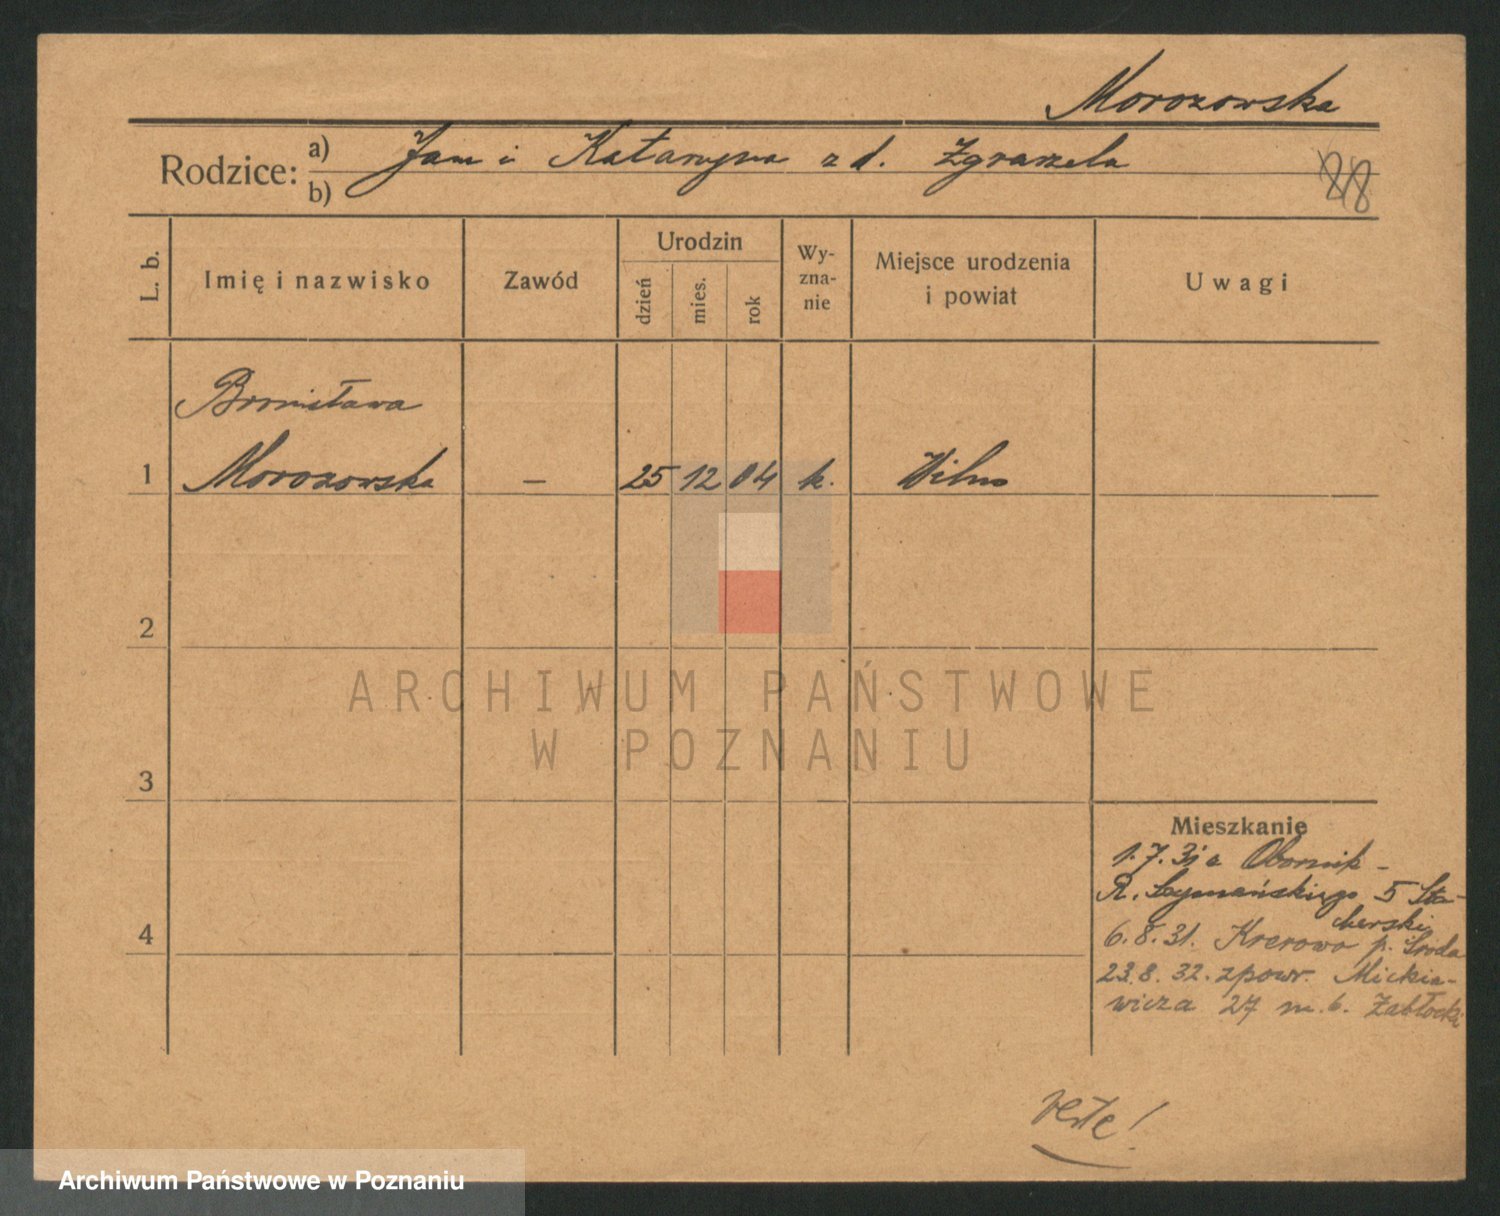 Morozowska
Rodzice: a) Jan i Katarzyna z d. Zgrarzela
b)
88
L. b. Imię i nazwisko Zawód Urodzin dzień mies. rok Wy-zna-nie Miejsce urodzenia i powiat Uwagi
Bronisława
1 Morozowska — 25 12 04 k. Wilno
2
ARCHIWUM PAŃSTWOWE
W POZNANIU
3
Mieszkanie
1.7.31 z Obornik -
R. Szymańskiego 5 Sta-
cherski
4
6.8.31. Krerowo p. Środa
23.8.32. zpowr. Mickie-
wicza 27 m. 6. Zabłocki
Archiwum Państwowe w Poznaniu